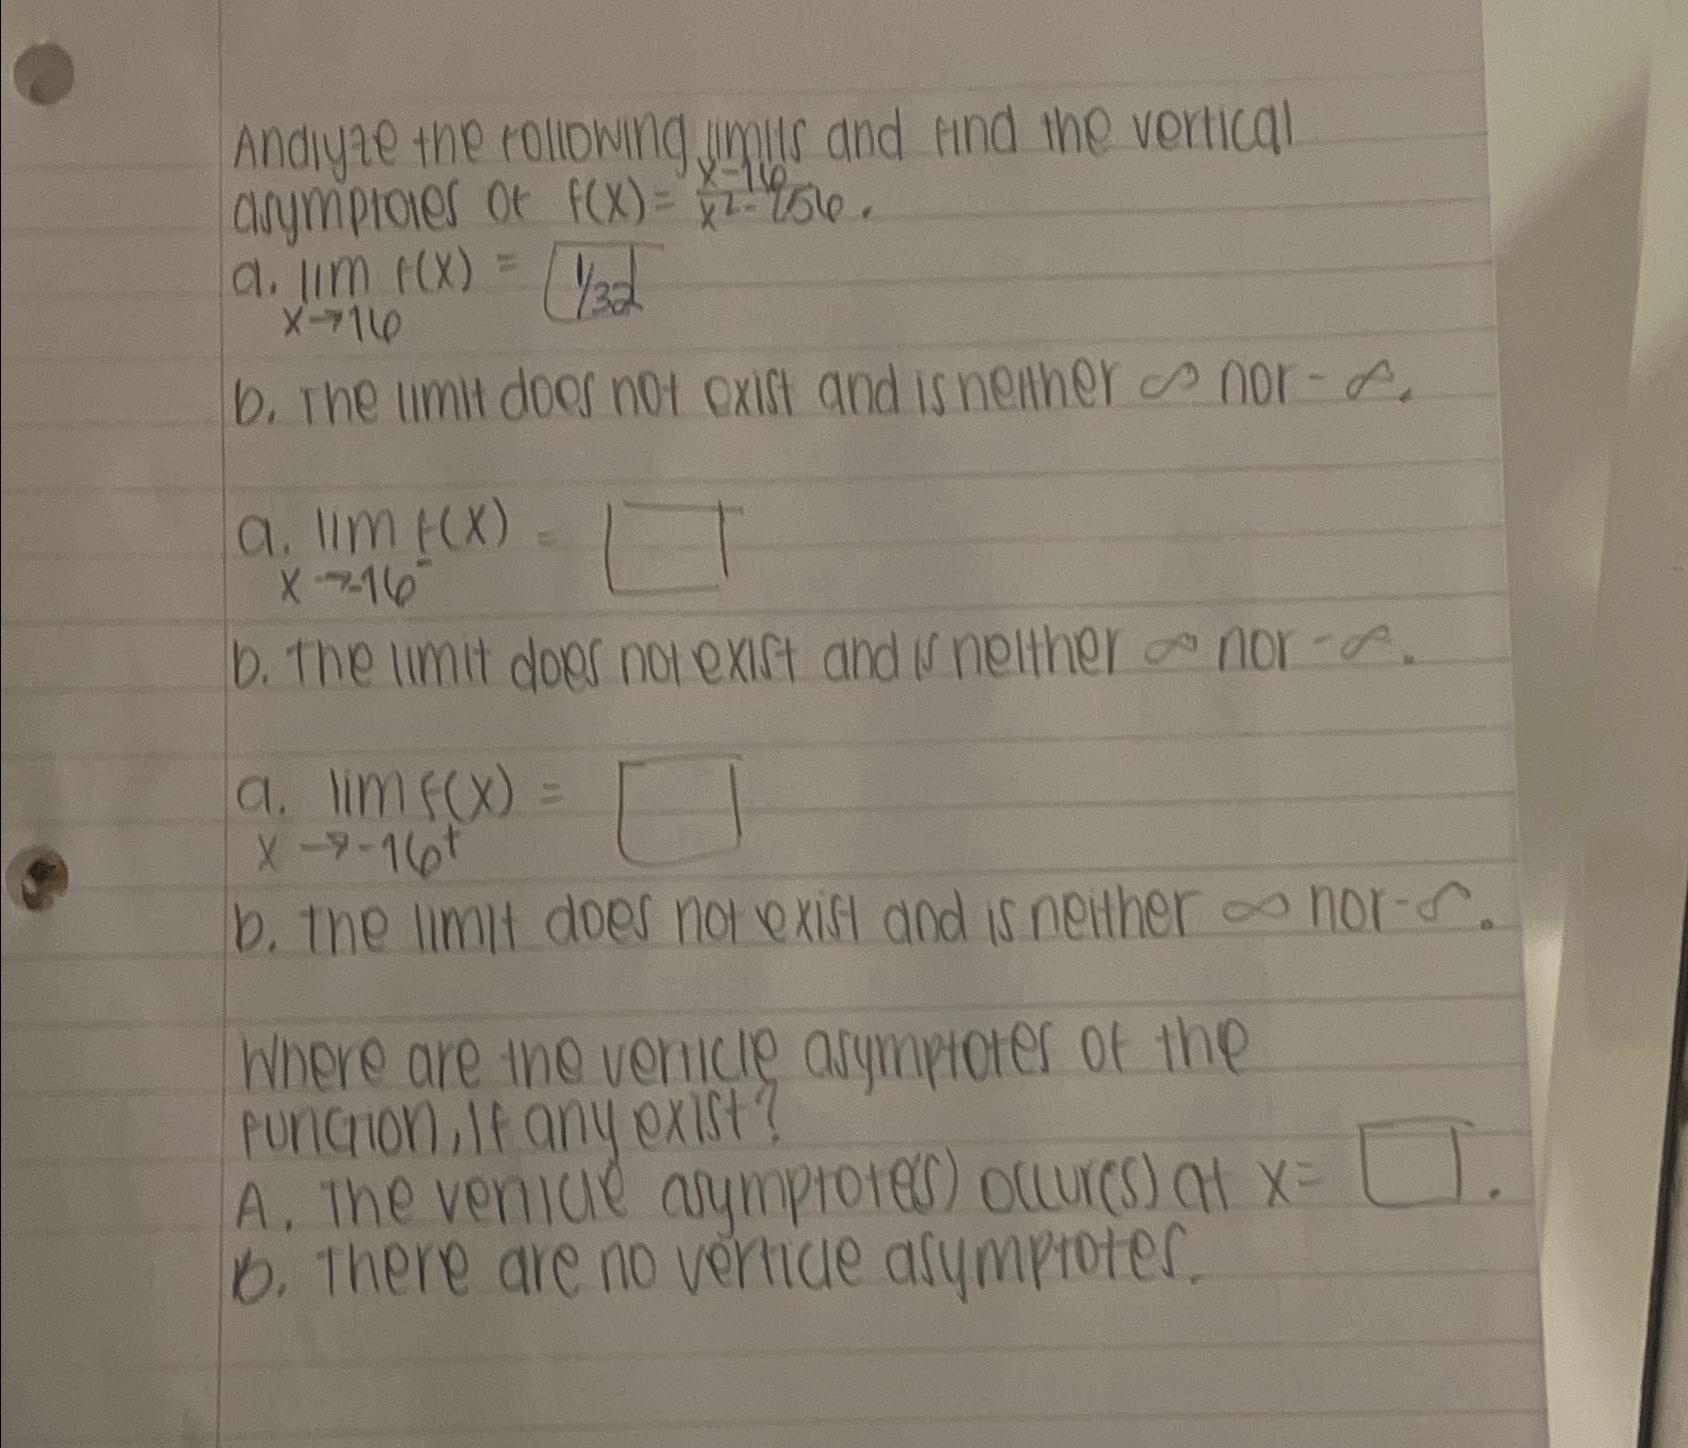 Andlyze the following limits and find the vertical
asymptotes of f(x) = x-16/x²-256.
a. lim f(x) = 1/32
x→16
b. The limit does not exist and is neither ∞ nor -∞.
a. lim f(x) =
x→-16⁻
b. The limit does not exist and is neither ∞ nor -∞.
a. lim f(x) =
x→-16⁺
b. The limit does not exist and is neither ∞ nor -∞.
Where are the verticle asymptotes of the
function, if any exist?
A. The verticle asymptote(s) occur(s) at x= .
b. There are no verticle asymptotes.